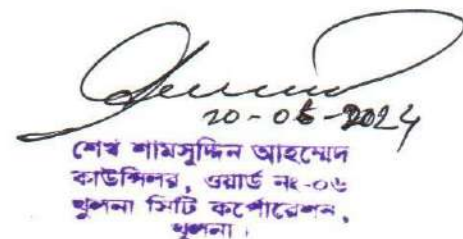 20-05-2024
শেখ শামসুদ্দিন আহম্মেদ
কাউন্সিলর, ওয়ার্ড নং-০৬
খুলনা সিটি কর্পোরেশন,
খুলনা।